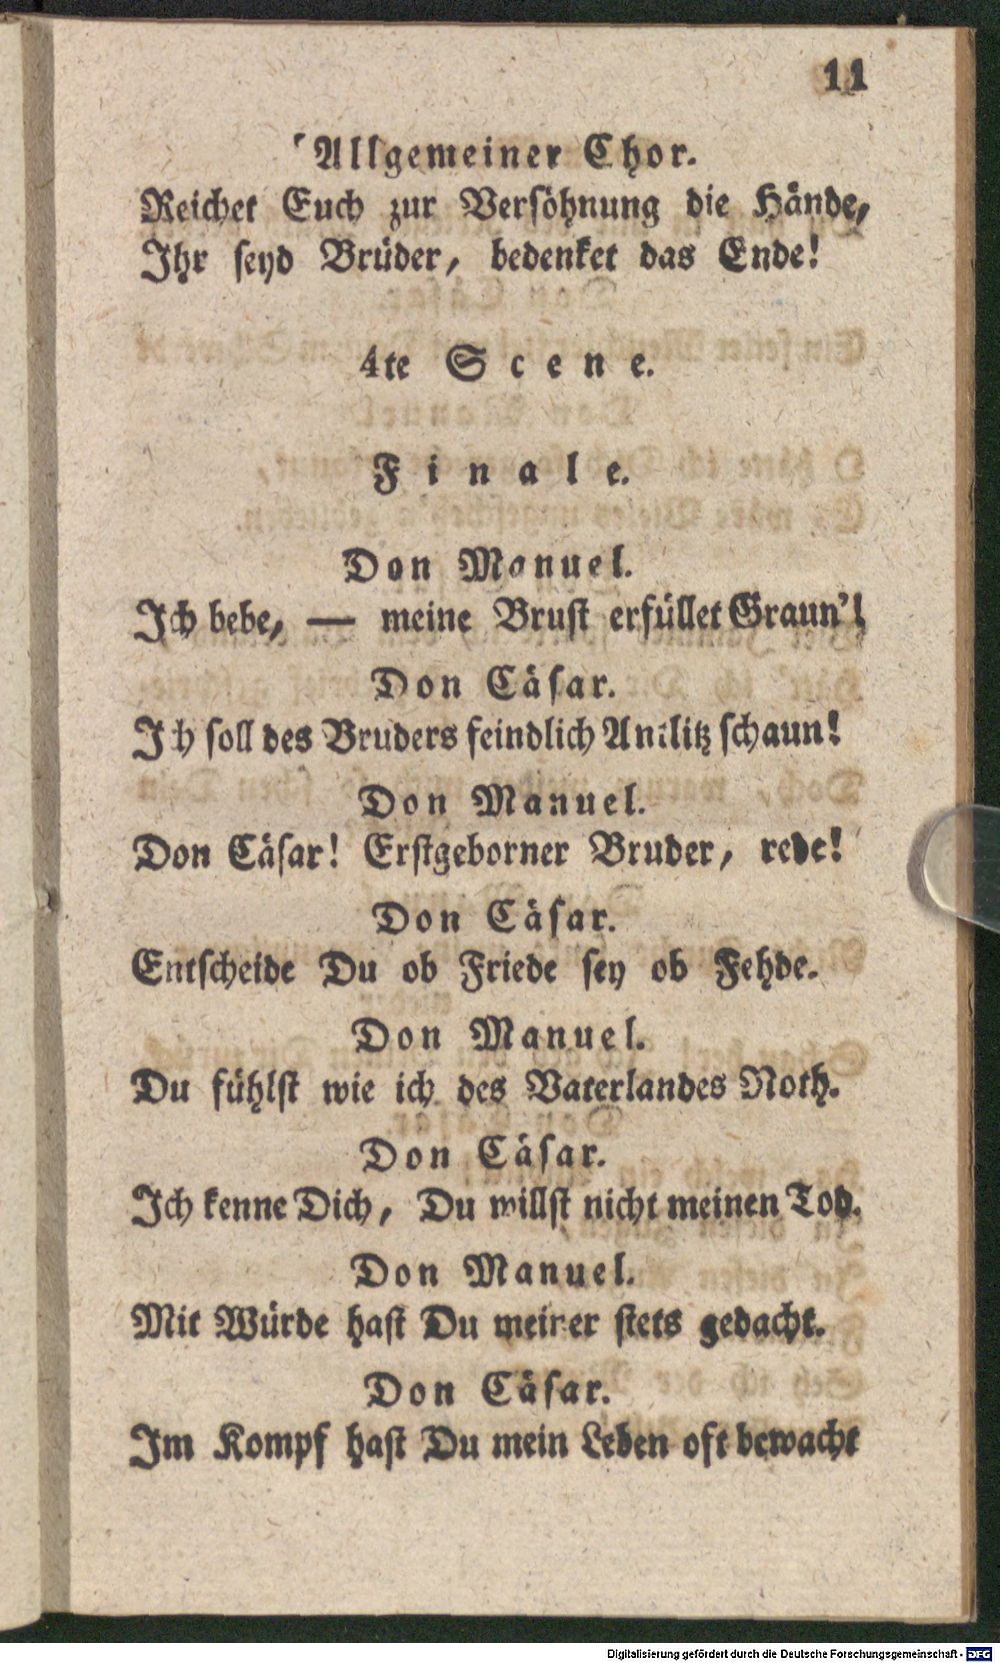 11
Allgemeiner Chor.
Reichet Euch zur Versöhnung die Hände,
Ihr seyd Brüder, bedenket das Ende!
4te Scene.
Finale.
Don Manuel.
Ich bebe, — meine Brust erfüllet Graun'!
Don Cäsar.
Ich soll des Bruders feindlich Antlitz schaun!
Don Manuel.
Don Cäsar! Erstgeborner Bruder, rede!
Don Cäsar.
Entscheide Du ob Friede sey ob Fehde.
Don Manuel.
Du fühlst wie ich des Vaterlandes Noth.
Don Cäsar.
Ich kenne Dich, Du willst nicht meinen Tod.
Don Manuel.
Mit Würde hast Du meiner stets gedacht.
Don Cäsar.
Im Kampf hast Du mein Leben oft bewacht
Digitalisierung gefördert durch die Deutsche Forschungsgemeinschaft - DFG